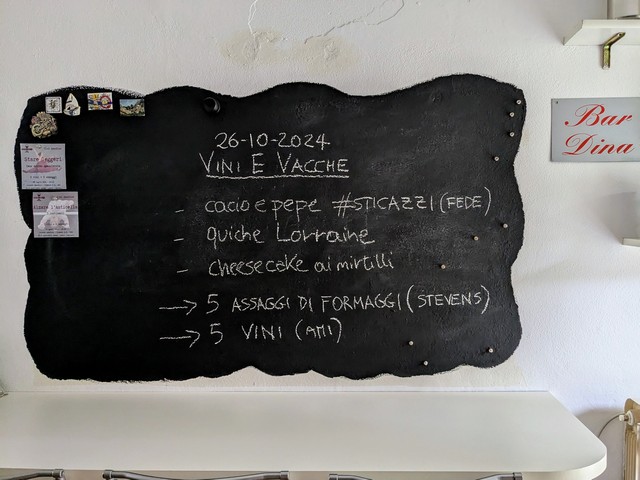 26-10-2024
VINI E VACCHE
- cacio e pepe #STICAZZI (FEDE)
- quiche Lorraine
- cheesecake ai mirtilli
→ 5 ASSAGGI DI FORMAGGI (STEVENS)
→ 5 VINI (AMI)
Bar
Dina